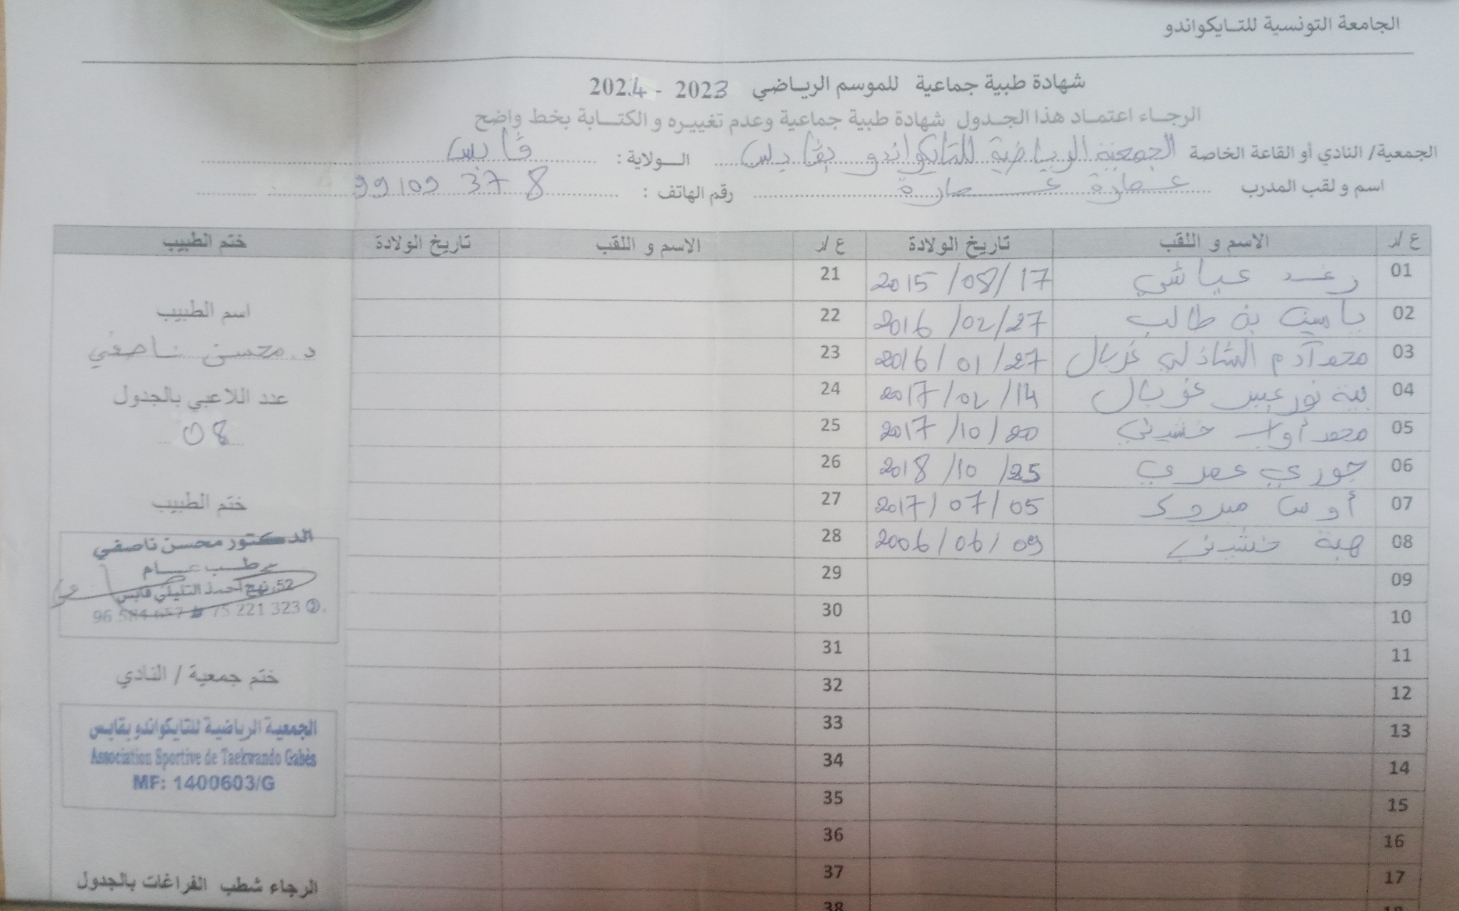 الجامعة التونسية للتايكواندو
شهادة طبية جماعية للموسم الرياضي 2023 - 2024
الرجاء اعتماد هذا الجدول شهادة طبية جماعية وعدم تغييره و الكتابة بخط واضح
الجمعية/ النادي أو القاعة الخاصة الجمعية الرياضية للتايكواندو بقابس الولاية : قابس
اسم و لقب المدرب عمارة عمارة رقم الهاتف : 99109378
ع /ر الاسم و اللقب تاريخ الولادة ع /ر الاسم و اللقب تاريخ الولادة ختم الطبيب
01 رغد عياشي 2015/08/17 21
02 ياسين بن طالب 2016/02/27 22
03 محمد آدم الشاذلي غربال 2016/01/27 23
04 بية نور عبير غربال 2017/02/14 24
05 محمد أواب خشيني 2017/10/20 25
06 جوري عمري 2018/10/25 26
07 أوس مبروك 2017/07/05 27
08 هبة خشيني 2006/06/09 28
09 29
10 30
11 31
12 32
13 33
14 34
15 35
16 36
17 37
38
اسم الطبيب
د. محسن ناصفي
عدد اللاعبي بالجدول
08
ختم الطبيب
الدكتور محسن ناصفي
طب عام
52، نهج أحمد التليلي قابس
75 221 323
ختم جمعية / النادي
الجمعية الرياضية للتايكواندو بقابس
Association Sportive de Taekwando Gabès
MF: 1400603/G
الرجاء شطب الفراغات بالجدول